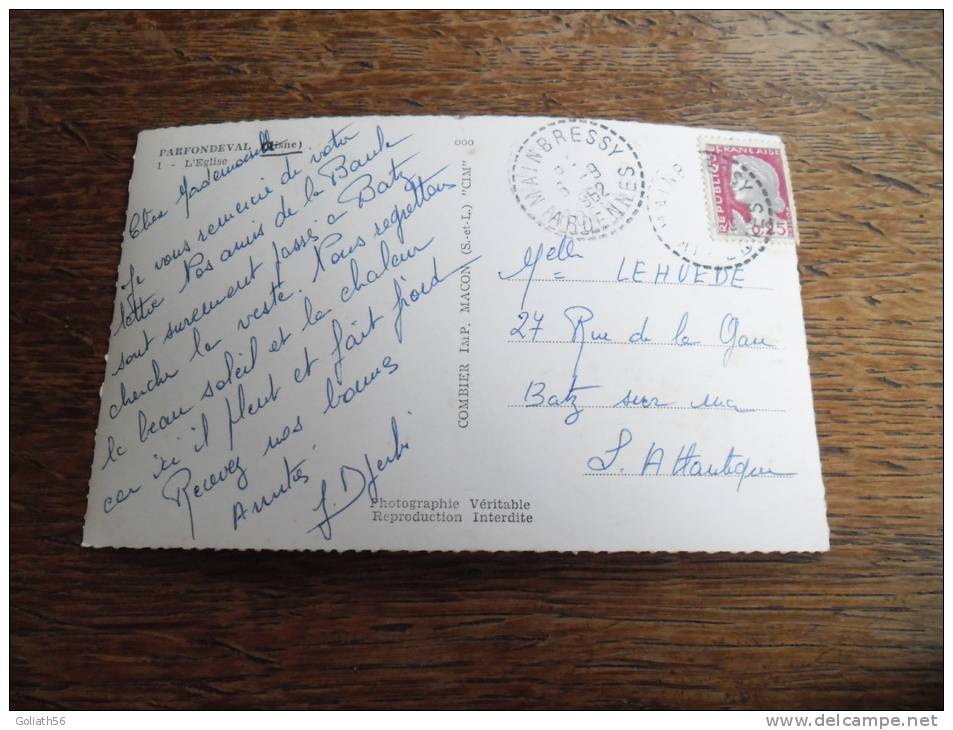 PARFONDEVAL (Aisne)
1 - L'Eglise
Chère Mademoiselle
Je vous remercie de votre
lettre Nos amis de la Baule
sont surement passé à Batz
cherche la veste. Nous regrettons
le beau soleil et la chaleur
car ici il pleut et fait froid
Recevez nos bonnes
Amitiés.
COMBIER IMP. MACON (S.-et-L.) "CIM"
Photographie Véritable
Reproduction Interdite
MAINBRESSY
ARDENNES
REPUBLIQUE FRANCAISE
0,25
Melle LEHUEDE
27 Rue de la Gare
Batz sur mer
L. Atlantique
Goliath56
www.delcampe.net